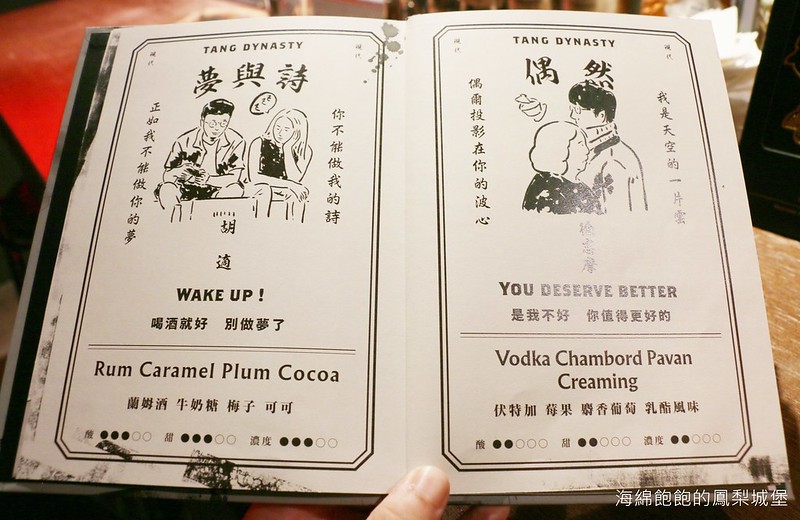 現代
TANG DYNASTY
現代
夢與詩
你不能做我的詩
正如我不能做你的夢
胡適
WAKE UP !
喝酒就好 別做夢了
Rum Caramel Plum Cocoa
蘭姆酒 牛奶糖 梅子 可可
酸 ●●●○○ 甜 ●●●○○ 濃度 ●●●○○
現代
TANG DYNASTY
現代
偶然
我是天空的一片雲
偶爾投影在你的波心
徐志摩
YOU DESERVE BETTER
是我不好 你值得更好的
Vodka Chambord Pavan
Creaming
伏特加 莓果 麝香葡萄 乳酪風味
酸 ●●○○○ 甜 ●●○○○ 濃度 ●●○○○
海綿飽飽的鳳梨城堡